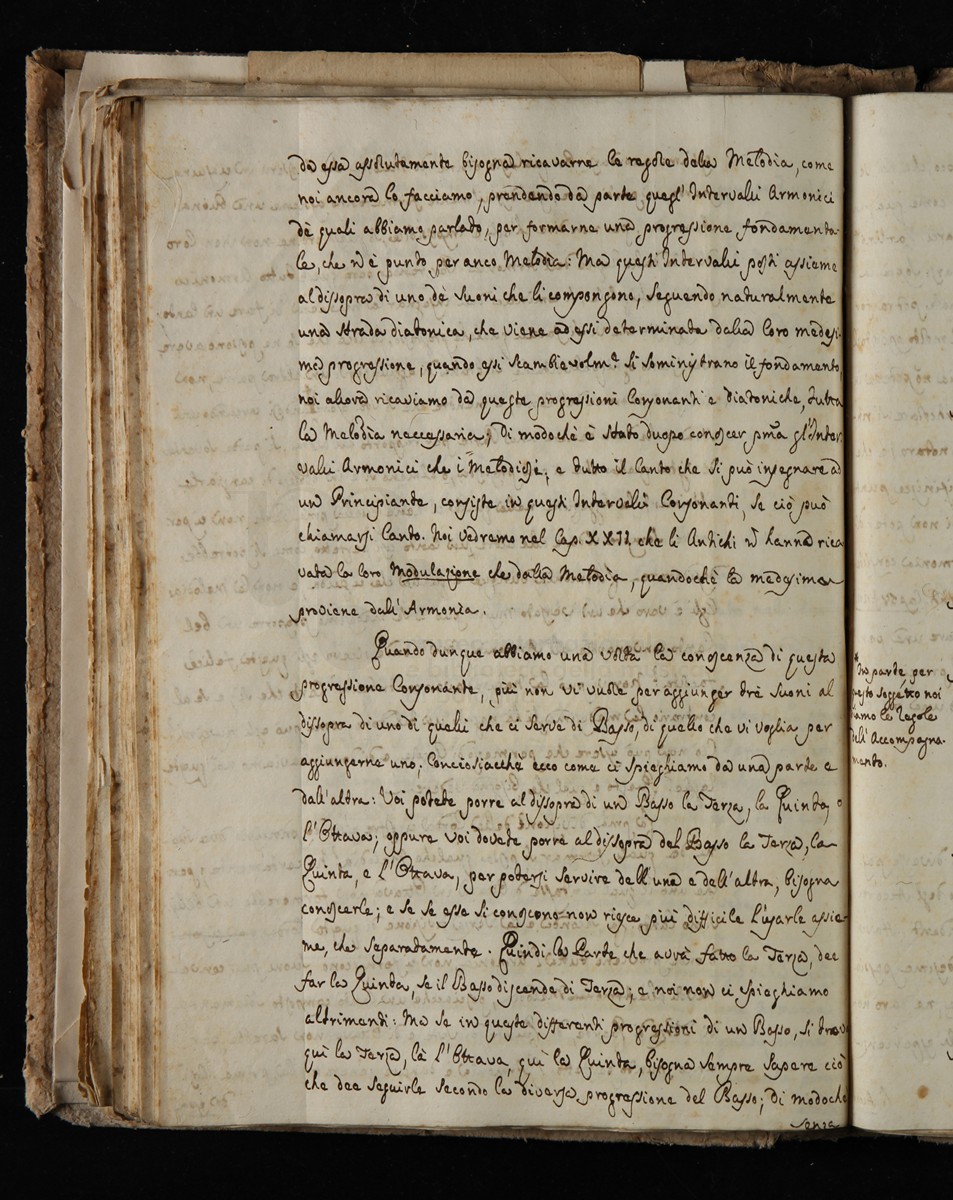 da essa assolutamente bisogna ricavarne le regole della Melodìa, come
noi ancora lo facciamo, prendendo da parte quegl'Intervalli Armonici
dè quali abbiamo parlato, per formarne una progressione fondamenta-
le, che n̄ è punto per anco Melodìa: Ma questi Intervalli posti assieme
al dissopra di uno dè Suoni che li compongono, seguendo naturalmente
una strada diatonica, che viene ad essi determinata dalla loro medesi-
ma progressione, quando essi scambievolm.e si somministrano il fondamento,
noi allora ricaviamo da queste progressioni Consonanti e diatoniche, tutta
la Melodìa neccessaria; di modochè è stato duopo conoscer pm̄a gl'Inter-
valli Armonici che i Melodici; e tutto il Canto che si può insegnare ad
un Principiante, consiste in questi Intervalli Consonanti se ciò può
chiamarsi Canto. Noi vedremo nel Cap. XXII. che li Antichi n̄ hanno rica
vata la loro Modulazione che dalla Melodìa, quandochè la medesima
proviene dall'Armonìa.
Quando dunque abbiamo una volta la conoscenza di questa
progressione Consonante, più non vi vuole per aggiunger trè Suoni al
dissopra di uno di quelli che ci serve di Basso, di quello che vi voglia per
aggiungerne uno; Conciosiacchè ecco come ci spieghiamo da una parte e
dall'altra: Voi potete porre al dissopra di un Basso la Terza, la Quinta, o
l'Ottava; oppure voi dovete porre al dissopra del Basso la Terza, la
Quinta, e l'Ottava, per potersi servire dell'una e dell'altra, bisogna
conoscerle; e se se esse si conoscono non riesce più difficile l'usarle assie-
me, che separatamente. Quindi la Parte che avrà fatto la Terza, dee
far la Quinta, se il Basso discende di Terza; e noi non ci spieghiamo
altrimenti: Ma se in queste differenti progressioni di un Basso, si trova
quì la Terza, là l'Ottava, quì la Quinta, bisogna sempre sapere ciò
che dee seguirle secondo la diversa progressione del Basso; di modochè
senza
In parte per
questo Soggetto noi
diamo le Regole
dell'Accompagna-
mento.